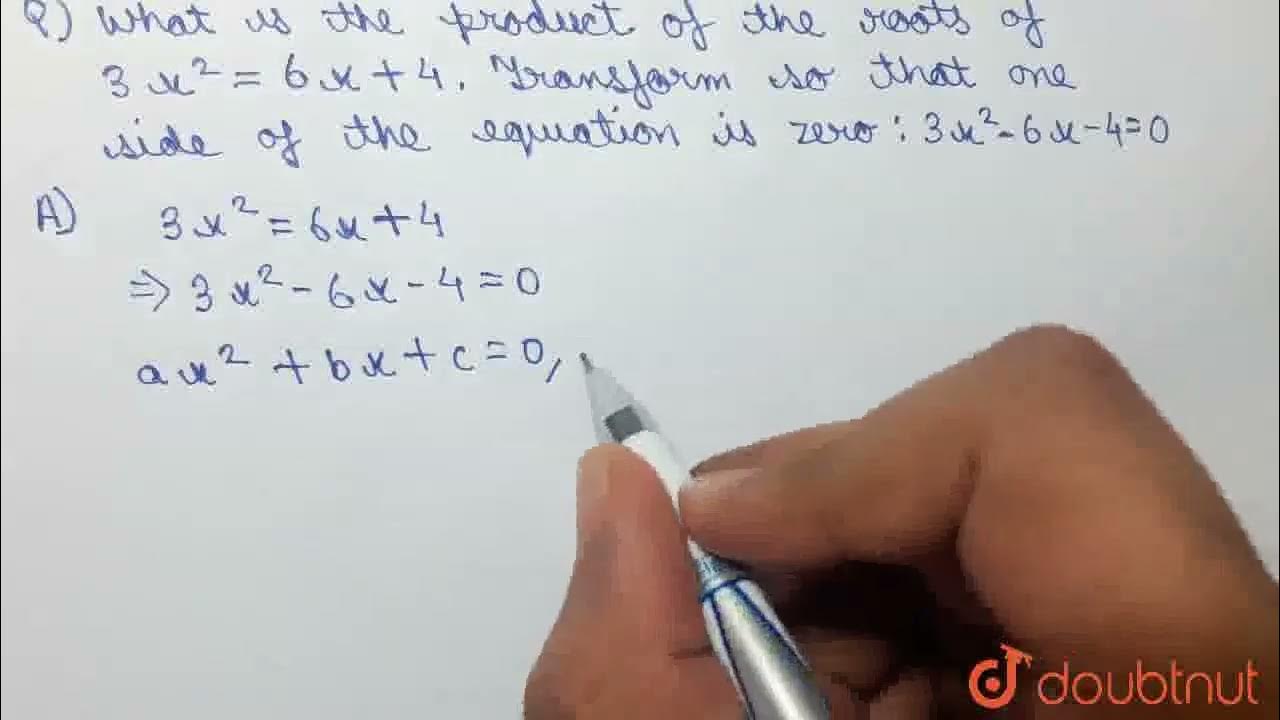 Q) What is the product of the roots of
3x² = 6x + 4. Transform so that one
side of the equation is zero : 3x² - 6x - 4 = 0
A) 3x² = 6x + 4
⇒ 3x² - 6x - 4 = 0
ax² + bx + c = 0,
doubtnut